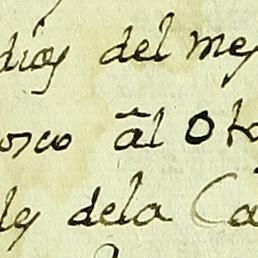 dias del mes
osco al Oto
de dela Ca